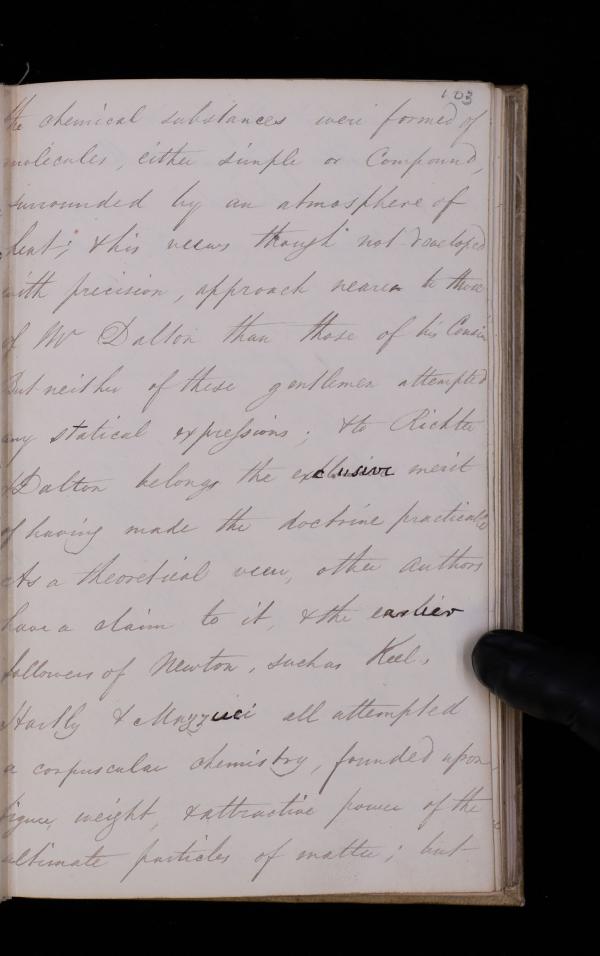 103
the chemical substances were formed of
molecules, either simple or Compound,
surrounded by an atmosphere of
heat; & his views though not developed
with precision, approach nearer to those
of Mr Dalton than those of his Cousin
But neither of these gentlemen attempted
any statical expressions; & to Richter
& Dalton belongs the exclusive merit
of having made the doctrine practicable
As a theoretical view, other authors
have a claim to it, & the earlier
followers of Newton, such as Keel,
Hartly & Mazzuci all attempted
a corpuscular chemistry, founded upon
figure, weight, & attractive power of the
ultimate particles of matter; but